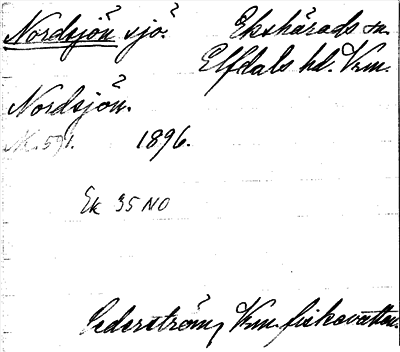 Nordsjön sjö. Ekshärads sn.
Elfdals hd. Vrm.
Nordsjön.
1896.
Ek 35 NO
Cederström, Vrm. fiskevatten.